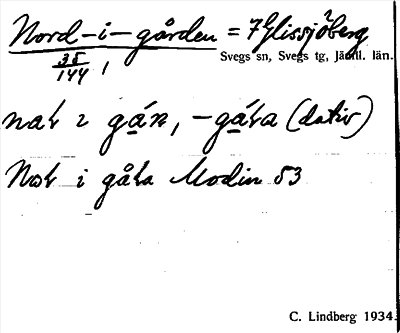 Nord-i-gården = 7 Glissjöberg
Svegs sn, Svegs tg, Jämtl. län.
35
144 1
nɑt ɩ gá̱n, -gá̱ta (dativ)
Not i gåta Modin 53
C. Lindberg 1934.